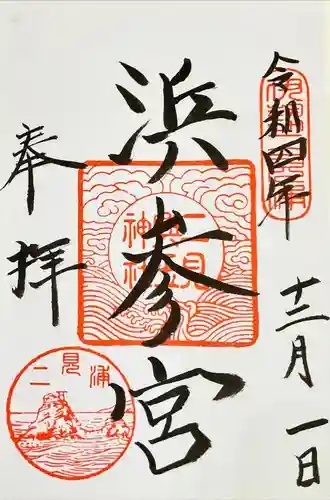 令和四年
十二月一日
浜参宮
奉拝
二見
興玉
神社
二見浦